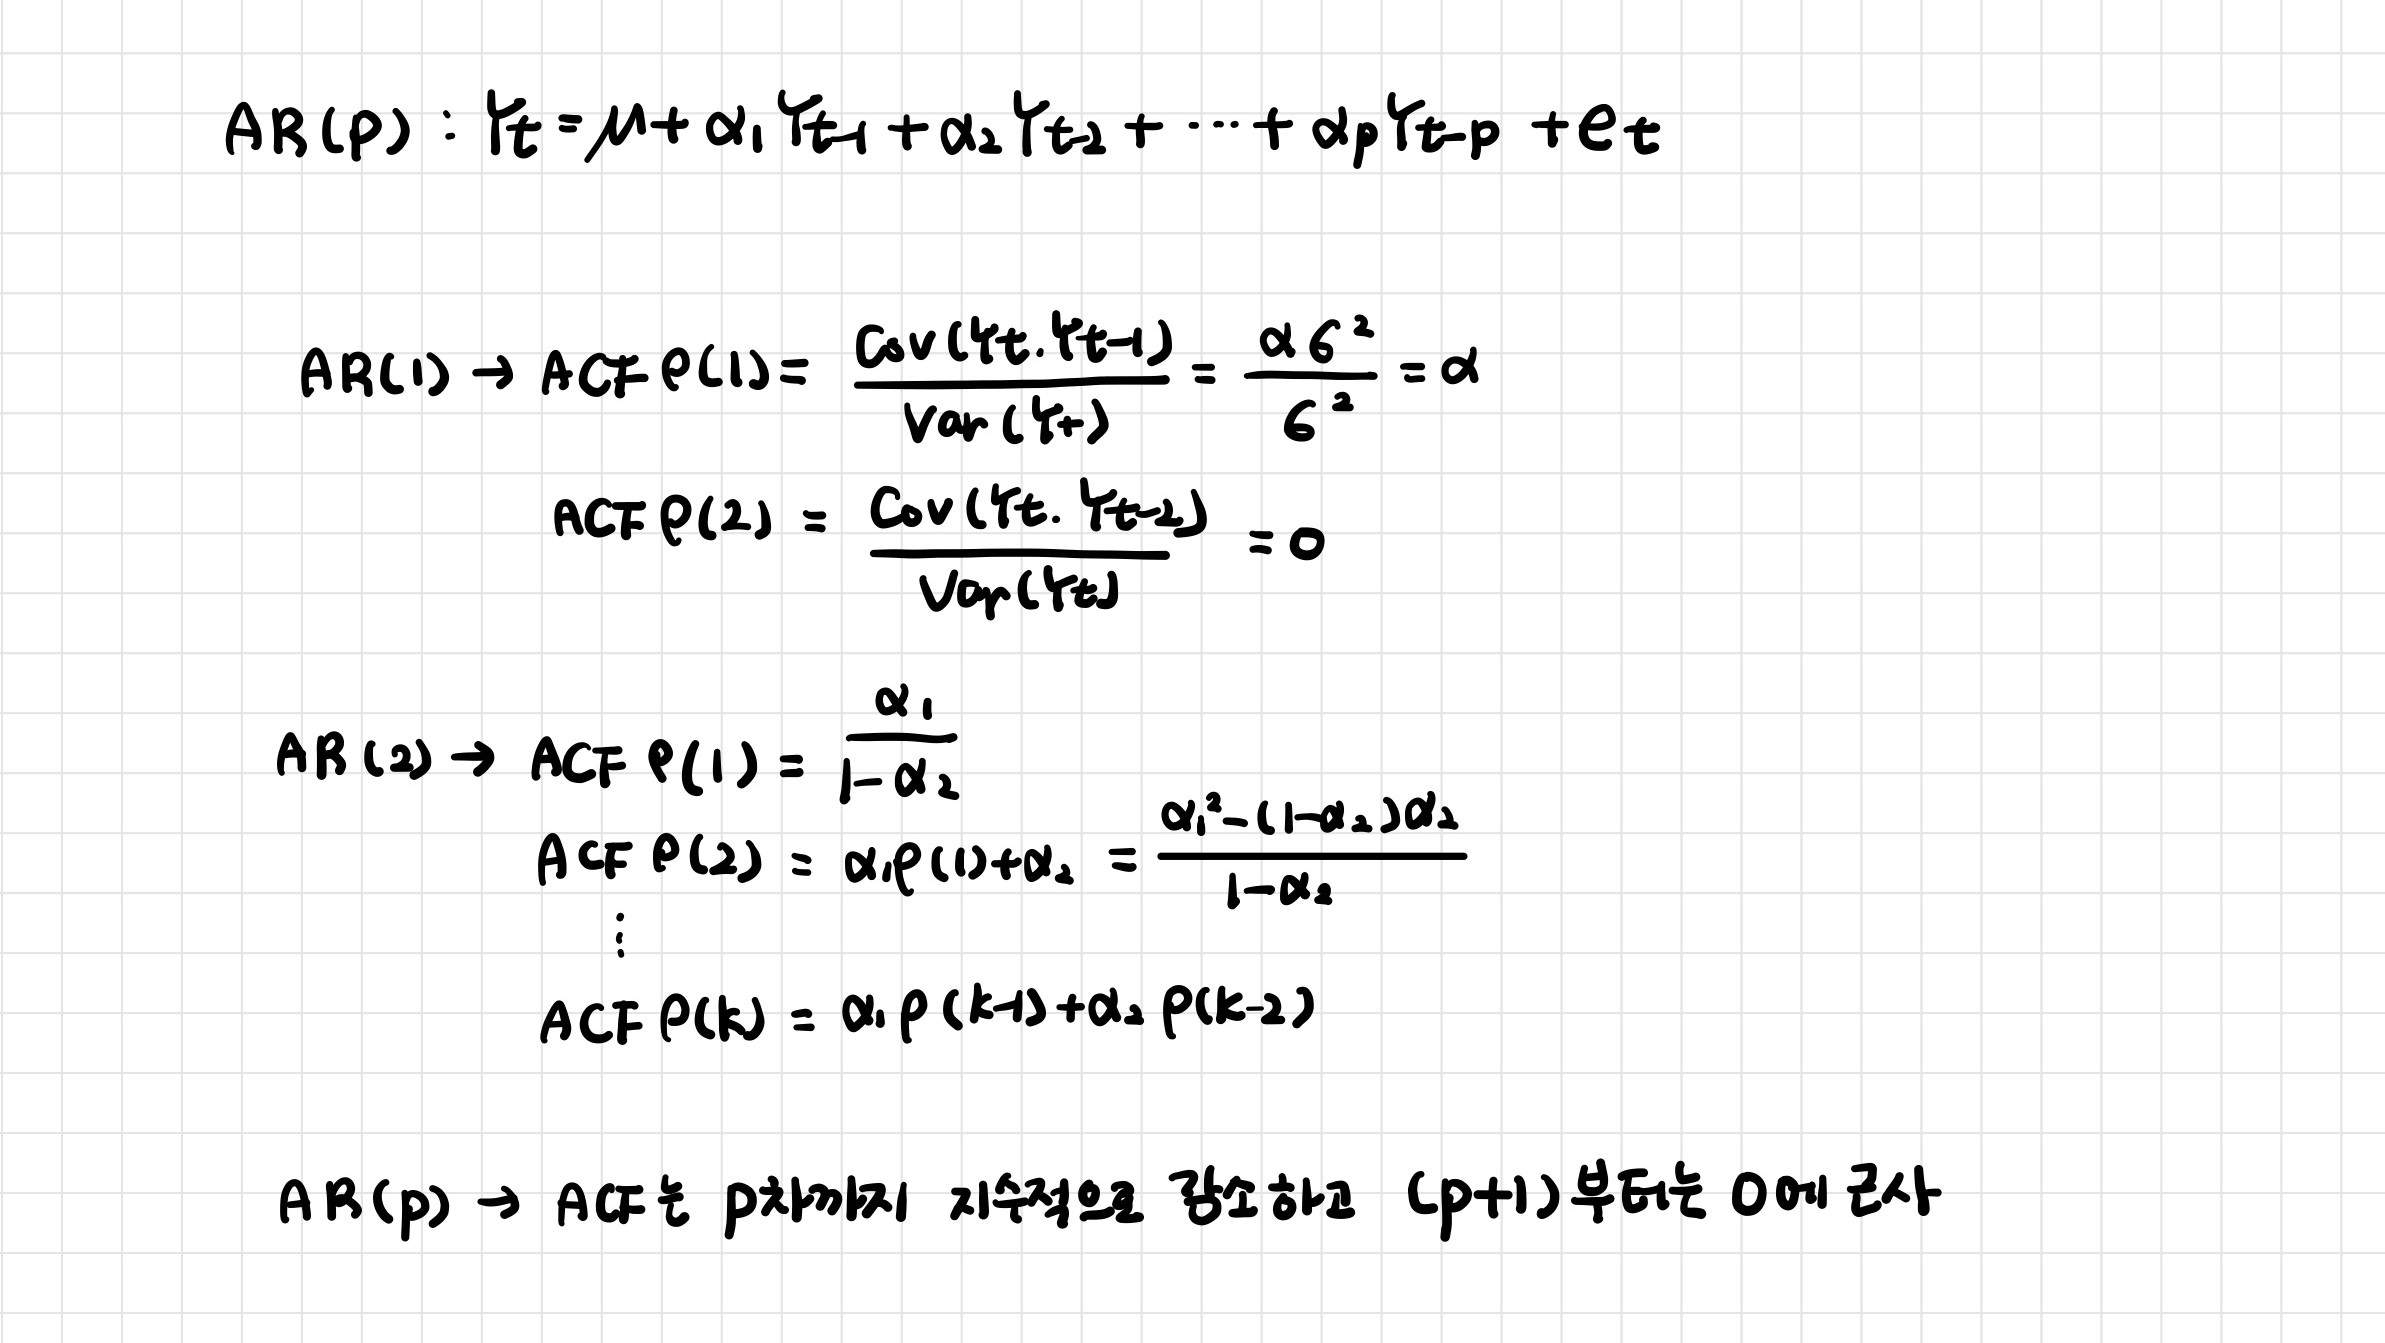 AR(p) : Yt = μ + α₁Yt-1 + α₂Yt-2 + ⋯ + αpYt-p + et
AR(1) → ACF ρ(1) = Cov(Yt.Yt-1) / Var(Yt) = α6² / 6² = α
ACF ρ(2) = Cov(Yt.Yt-2) / Var(Yt) = 0
AR(2) → ACF ρ(1) = α₁ / 1-α₂
ACF ρ(2) = α₁ρ(1)+α₂ = α₁²-(1-α₂)α₂ / 1-α₂
⋮
ACF ρ(k) = α₁ρ(k-1)+α₂ρ(k-2)
AR(p) → ACF는 p차까지 지수적으로 감소하고 (p+1)부터는 0에 근사